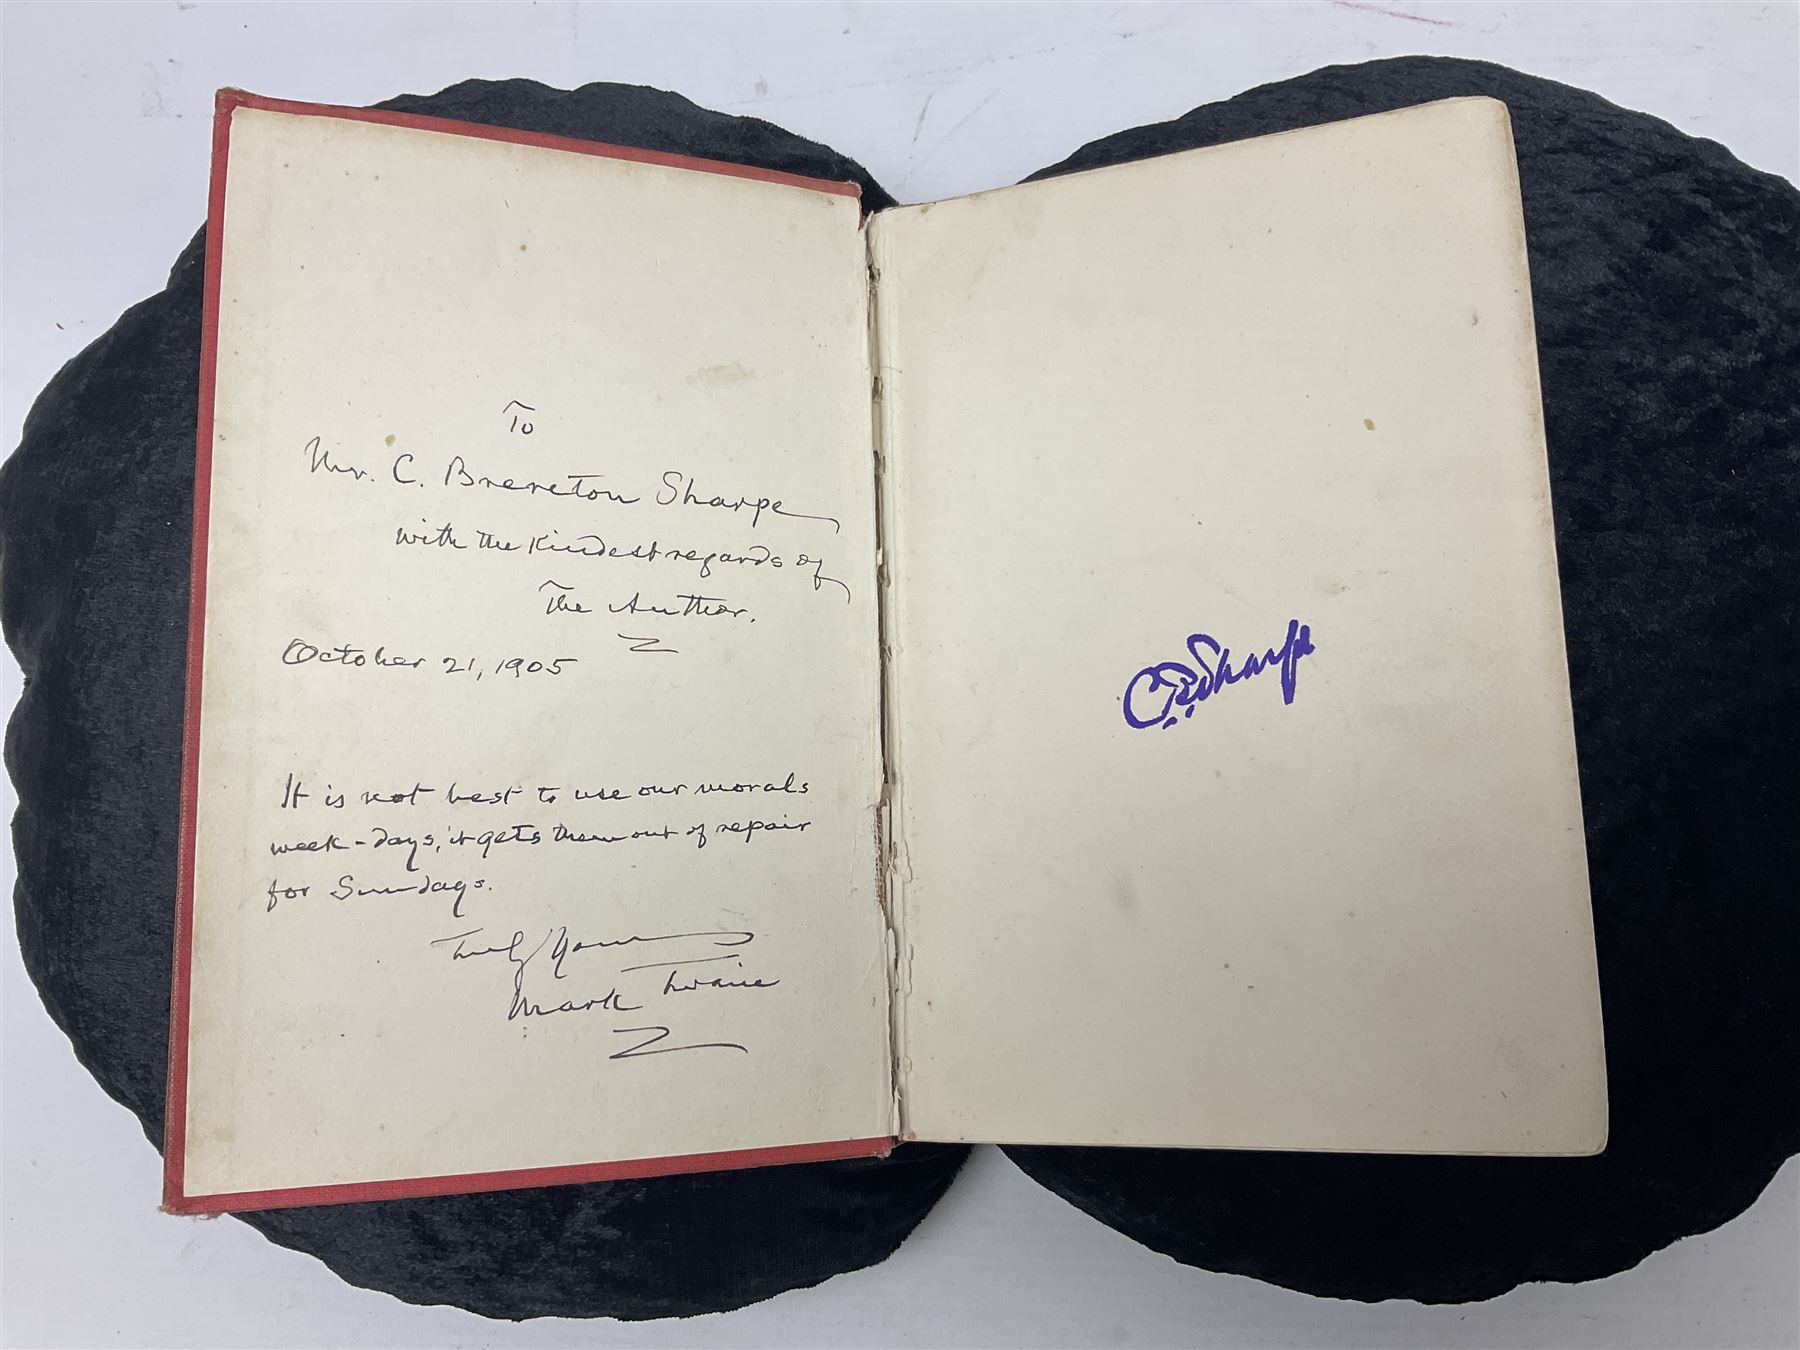 To
Mr. C. Brereton Sharpe
with the kindest regards of
The Author.
October 21, 1905
It is not best to use our morals
week-days, it gets them out of repair
for Sundays.
Truly Yours
Mark Twain
C. B. Sharpe